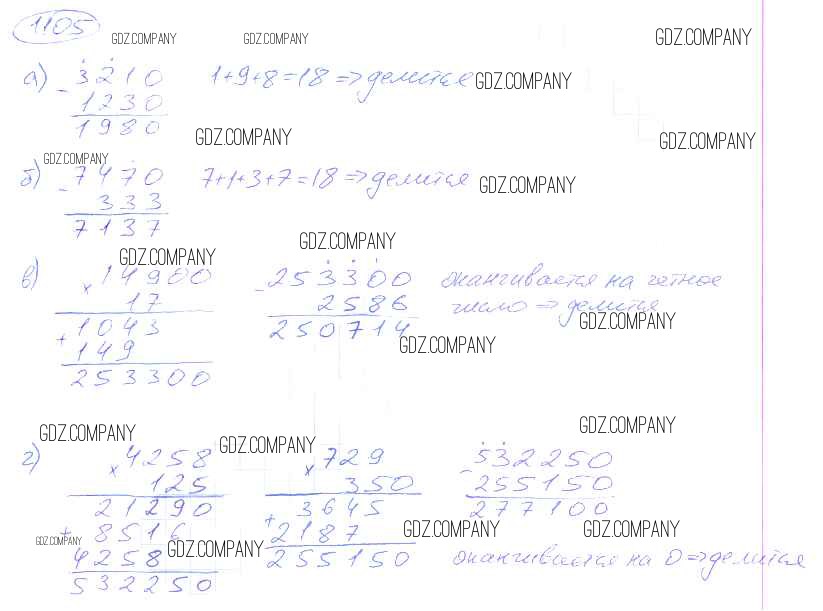 1105
GDZ.COMPANY GDZ.COMPANY GDZ.COMPANY
а) - 3210 1+9+8=18 => делится GDZ.COMPANY
1230
1980 GDZ.COMPANY GDZ.COMPANY
GDZ.COMPANY
б) - 7470 7+1+3+7=18 => делится GDZ.COMPANY
333
7137
GDZ.COMPANY GDZ.COMPANY
в) x 14900 - 253300 оканчивается на четное
17 2586 число => делится
GDZ.COMPANY
+ 1043 250714
GDZ.COMPANY
149
253300
GDZ.COMPANY GDZ.COMPANY GDZ.COMPANY
г) x 4258 x 729 - 532250
125 350 255150
21290 + 3645 277100
+ 8516 2187 GDZ.COMPANY GDZ.COMPANY
GDZ.COMPANY 4258 GDZ.COMPANY 255150 оканчивается на 0 => делится
532250